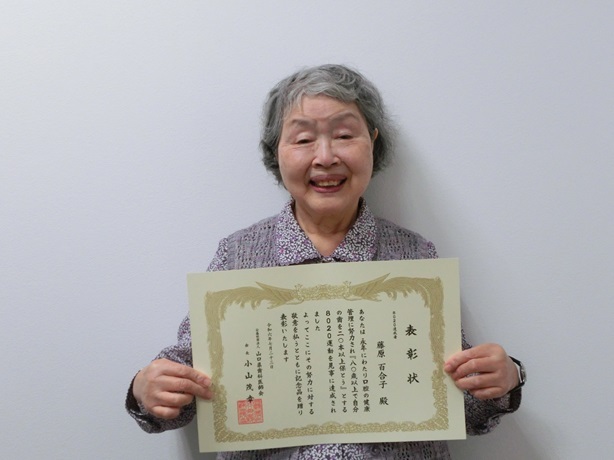 表彰状
藤原 百合子 殿
あなたは永年にわたり口腔の健康
管理に努力され「八〇歳以上で自分
の歯を二〇本以上保とう」とする
8020運動を見事に達成され
ました
よってここにその努力に対する
敬意を払うとともに記念品を贈り
表彰いたします
山口県歯科医師会
会長 小山 茂幸